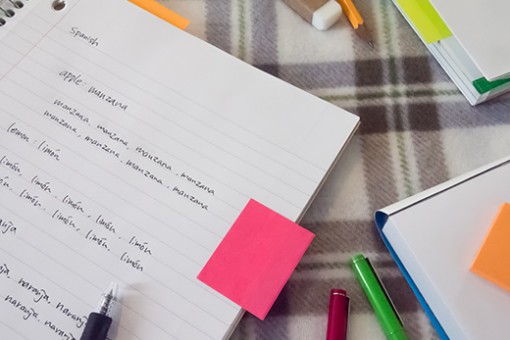 Spanish
apple : manzana
manzana, manzana, manzana, manzana
manzana, manzana, manzana, manzana
lemon : limón
limón, limón, limón, limón, limón
limón, limón, limón, limón
naranja, naranja
naranja, naranja